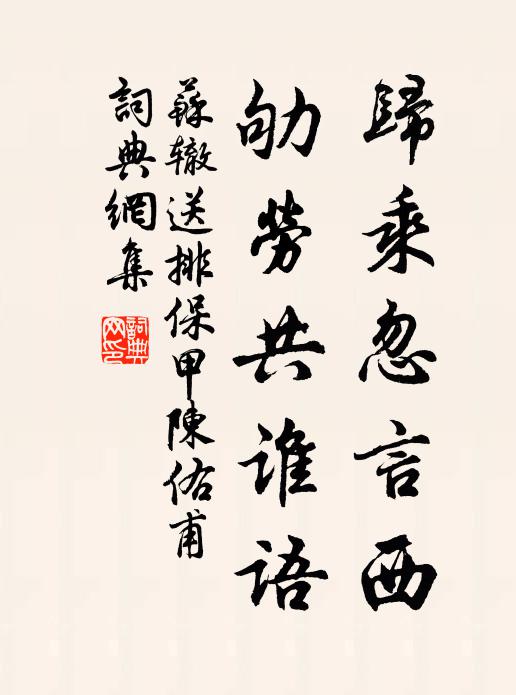 歸乘忽言西
劬勞共谁語
蘇辙送排保甲陳佑甫
詞典網集
詞典网印